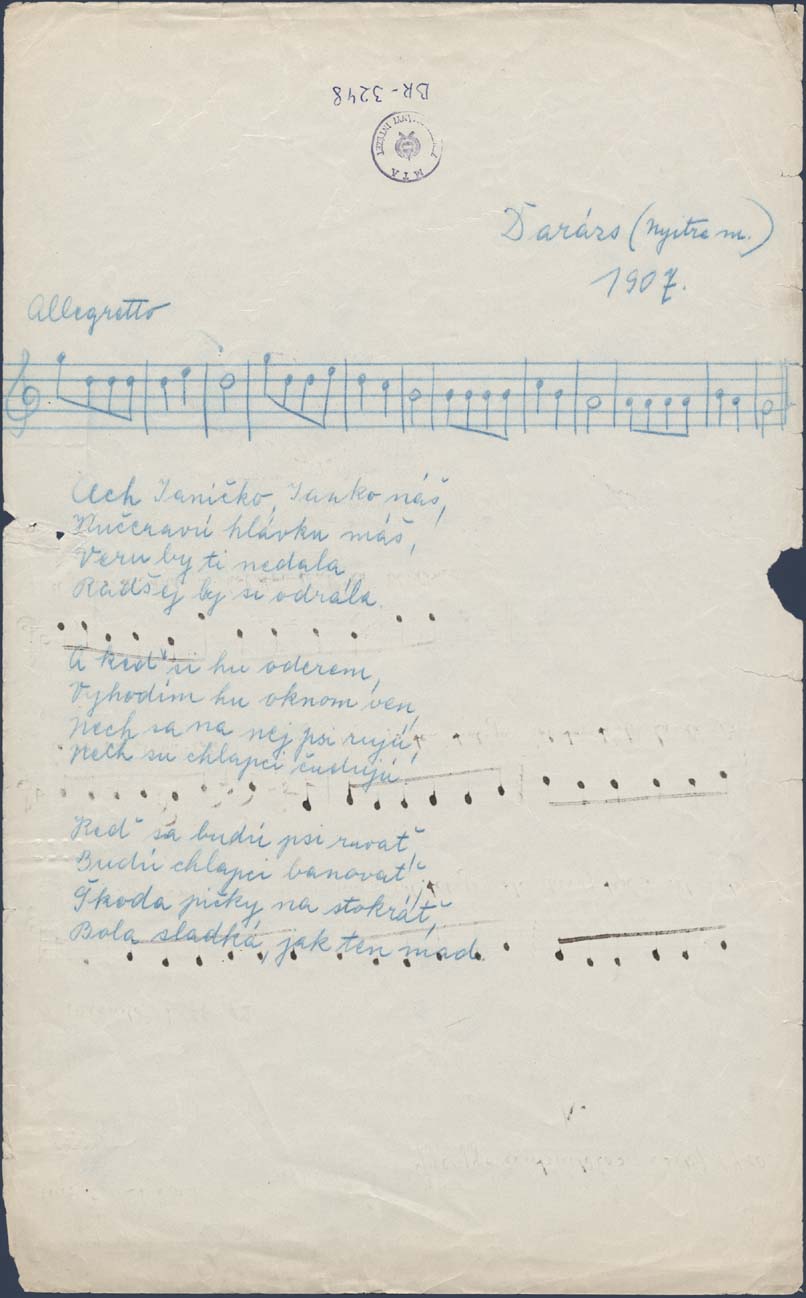 BR-3248
MTA
Darázs (Nyitra m.)
1907.
Allegretto
Ach Janíčko, Janko náš,
Kučeravú hlávku máš,
Veru by ti nedala
Radšej by si odrála.
A keď si hu oderem,
Vyhodím hu oknom ven,
Nech sa na nej psi rujú,
Nech su chlapci čudujú.
Keď sa budú psi ruvať
Budú chlapci banovať
Škoda pičky na stokráť,
Bola sladká, jak ten mad.